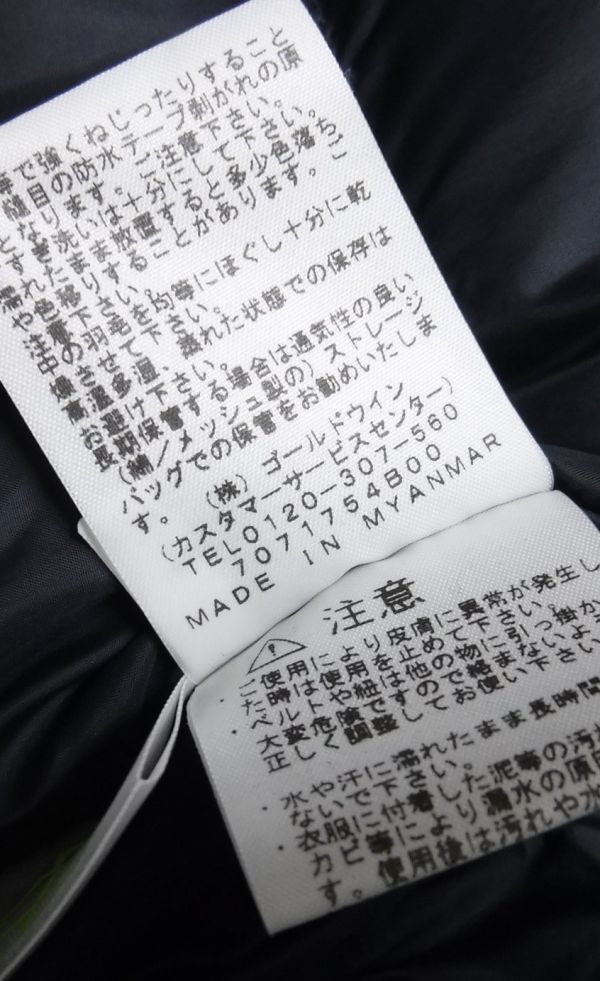 等で強くねじったりすること
縫目の防水テープ剥がれの原
となります。ご注意下さい。
すすぎ洗いは十分にして下さい。
濡れたまま放置すると多少色落ち
や色移りすることがあります。ご
注意下さい。
中の羽毛を均等にほぐし十分に乾
燥させて下さい。
高温多湿、濡れた状態での保存は
お避け下さい。
長期保管する場合は通気性の良い
(綿/メッシュ型の)ストレージ
バッグでの保管をお勧めいたしま
す。
(株) ゴールドウイン
(カスタマーサービスセンター)
TEL0120-307-560
7071754B00
MADE IN MYANMAR
注意
ご使用により皮膚に異常が発生し
た時は使用を止めて下さい。
ベルトや紐は他の物に引っ掛か
大変危険ですので絡まないよ
正しく調整してお使い下さい
・水や汗に濡れたまま長時間
ないで下さい。
・衣服に付着した泥等の汚
カビ等により漏水の原因
す。使用後は汚れや水